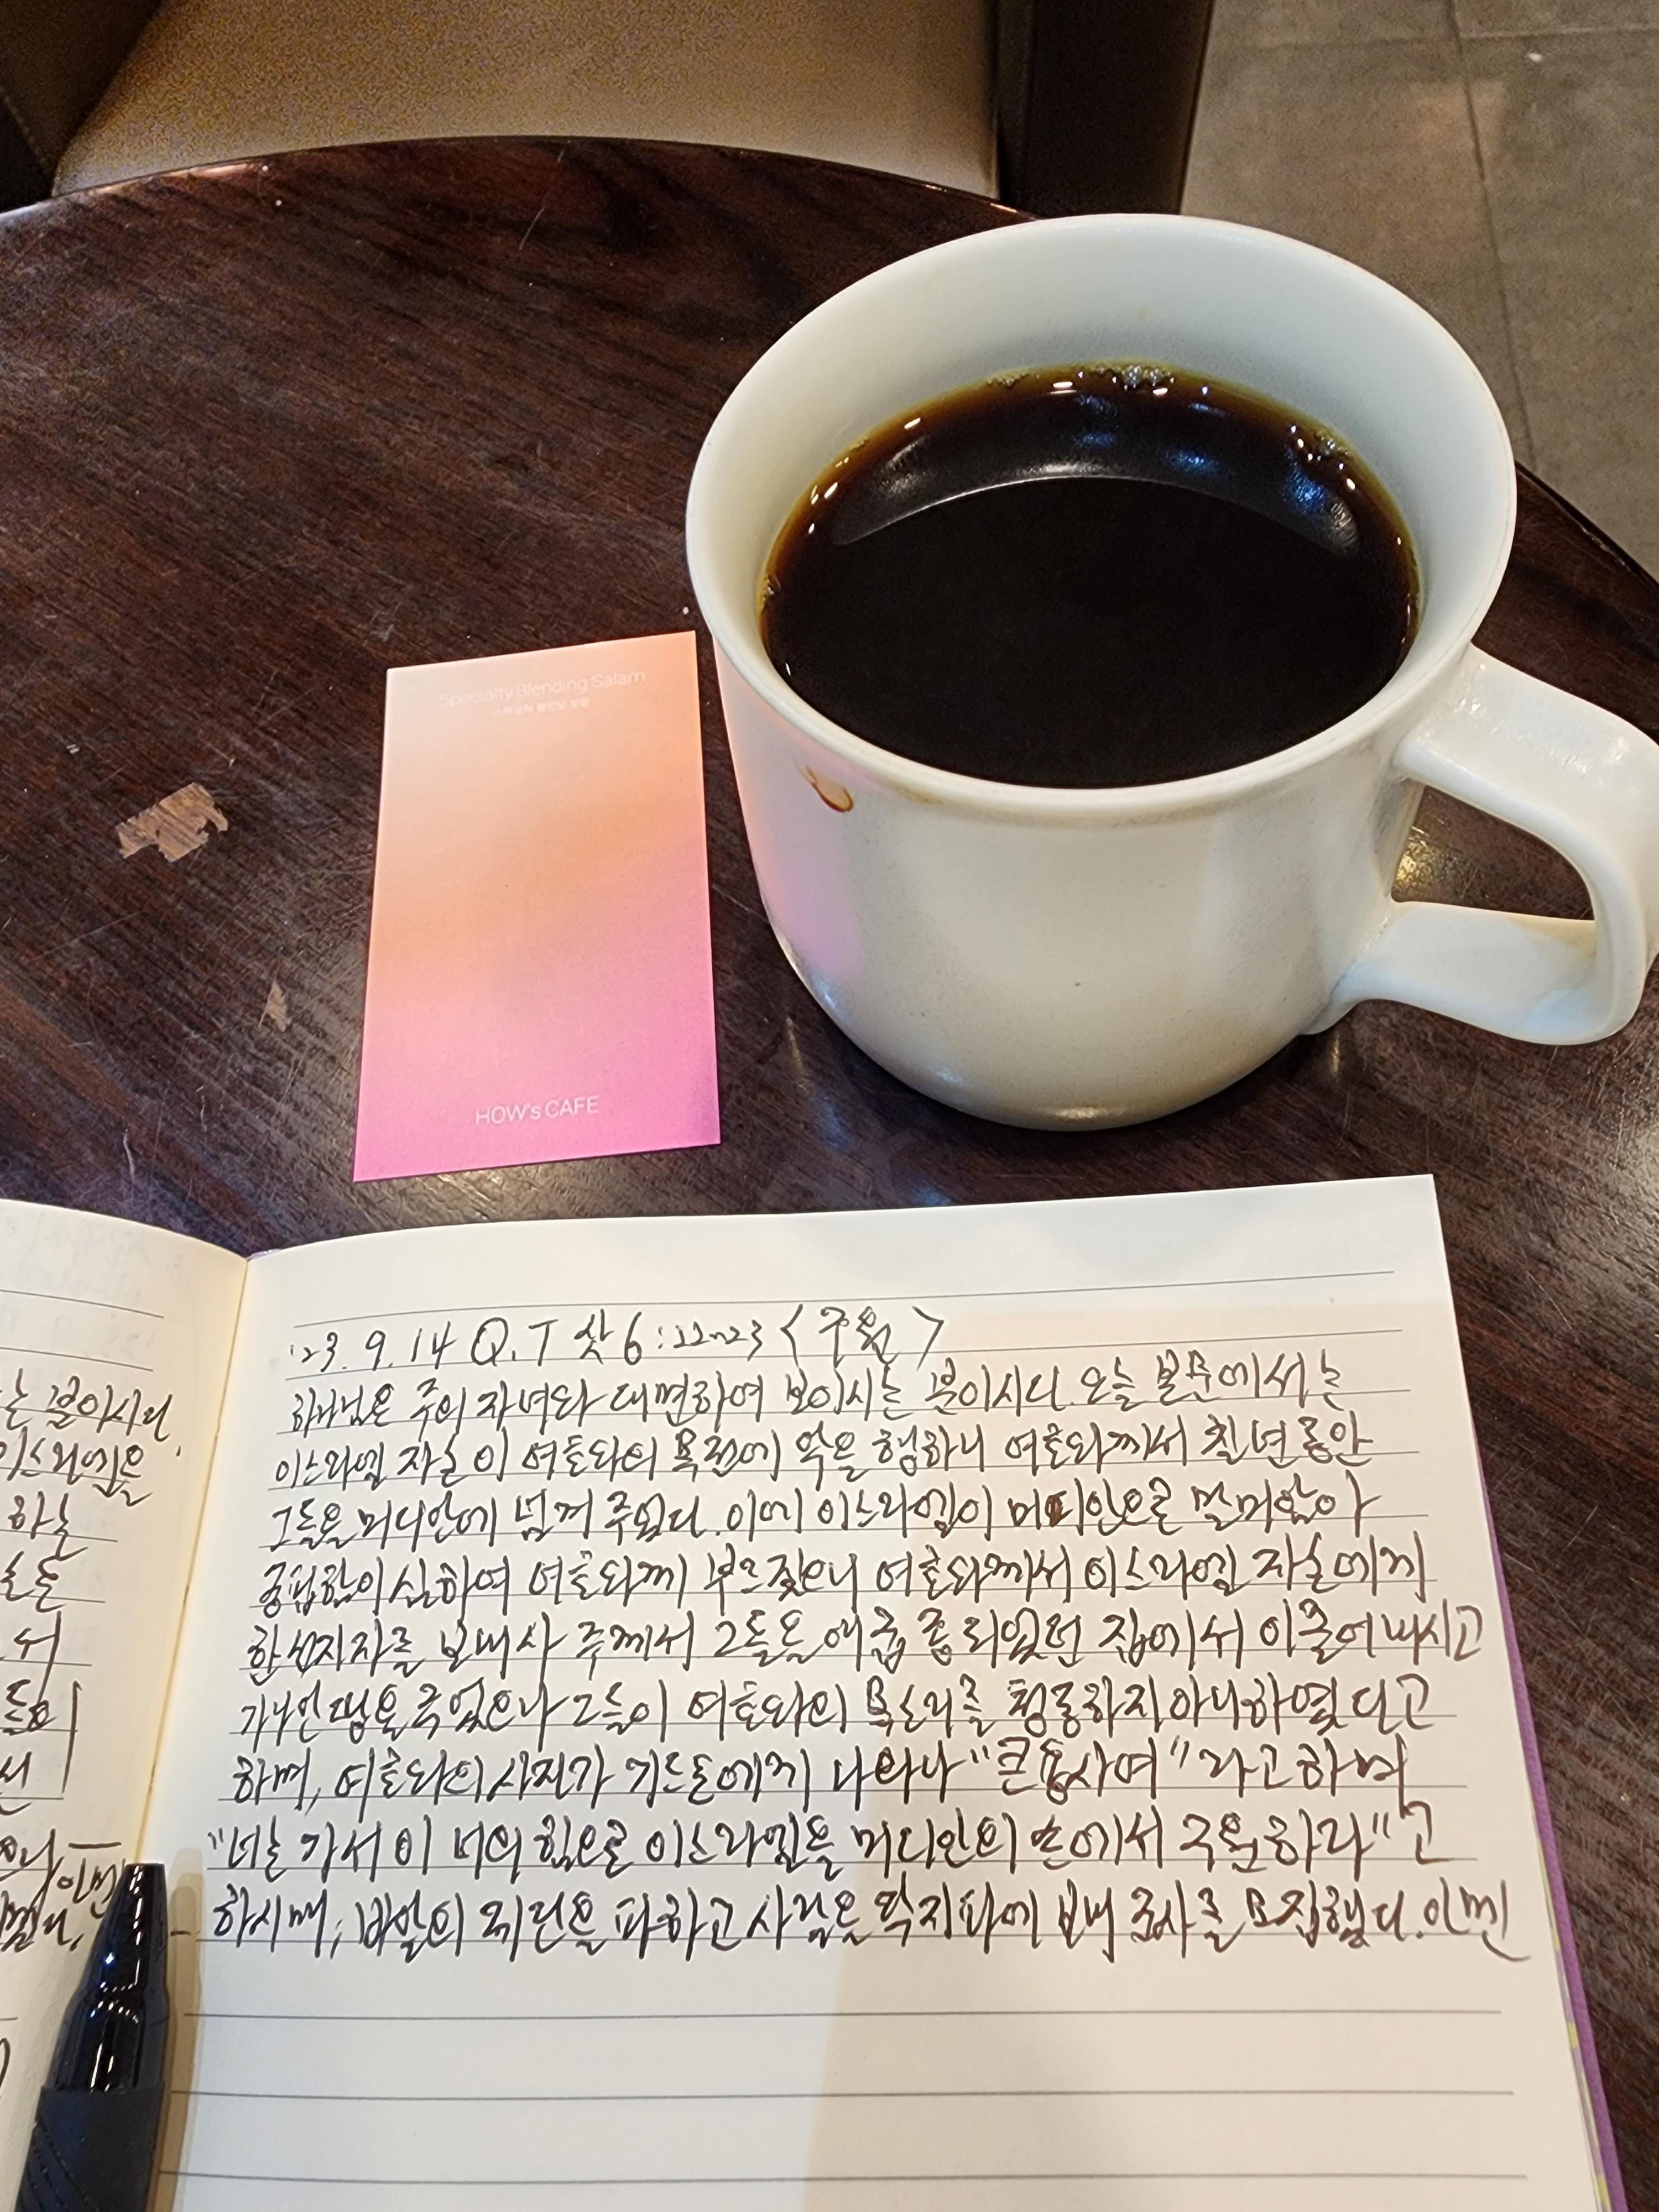 Specialty Blending Salam
스페셜티 블렌딩 살람
HOW's CAFE
'23. 9. 14 Q.T 삿 6:22~23 <구원>
하나님은 주의 자녀와 대면하여 보이시는 분이시다. 오늘 본문에서는
이스라엘 자손이 여호와의 목전에 악을 행하니 여호와께서 칠년 동안
그들을 미디안에 넘겨 주었다. 이에 이스라엘이 미디안으로 말미암아
궁핍함이 심하여 여호와께 부르짖으니 여호와께서 이스라엘 자손에게
한 선지자를 보내사 주께서 그들을 애굽 종 되었던 집에서 이끌어 내시고
가나안 땅을 주었으나 그들이 여호와의 목소리를 청종하지 아니하였다고
하며, 여호와의 사자가 기드온에게 나와나 "큰 용사여" 라고 하며
"너는 가서 이 너의 힘으로 이스라엘을 미디안의 손에서 구원하라"고
하시매, 바알의 제단을 파하고 사람을 각지파에 보내 군사를 모집했다. 아멘
는 분이시다.
이스라엘은